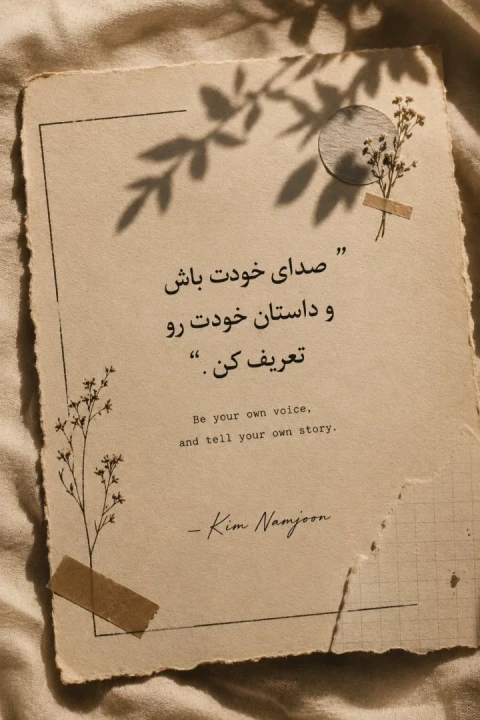 ” صدای خودت باش
و داستان خودت رو
تعریف کن . “
Be your own voice,
and tell your own story.
— Kim Namjoon